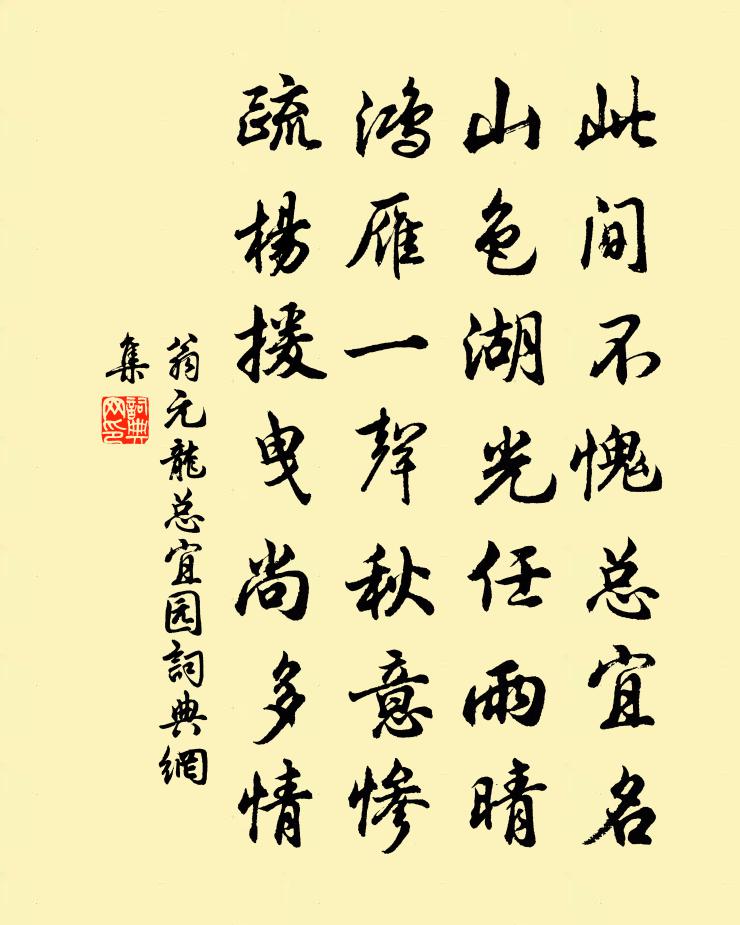 此间不愧总宜名
山色湖光任雨晴
鸿雁一聲秋意惨
疏楊援曳尚多情
翁元龍总宜园詞典網
集
詞典
网印